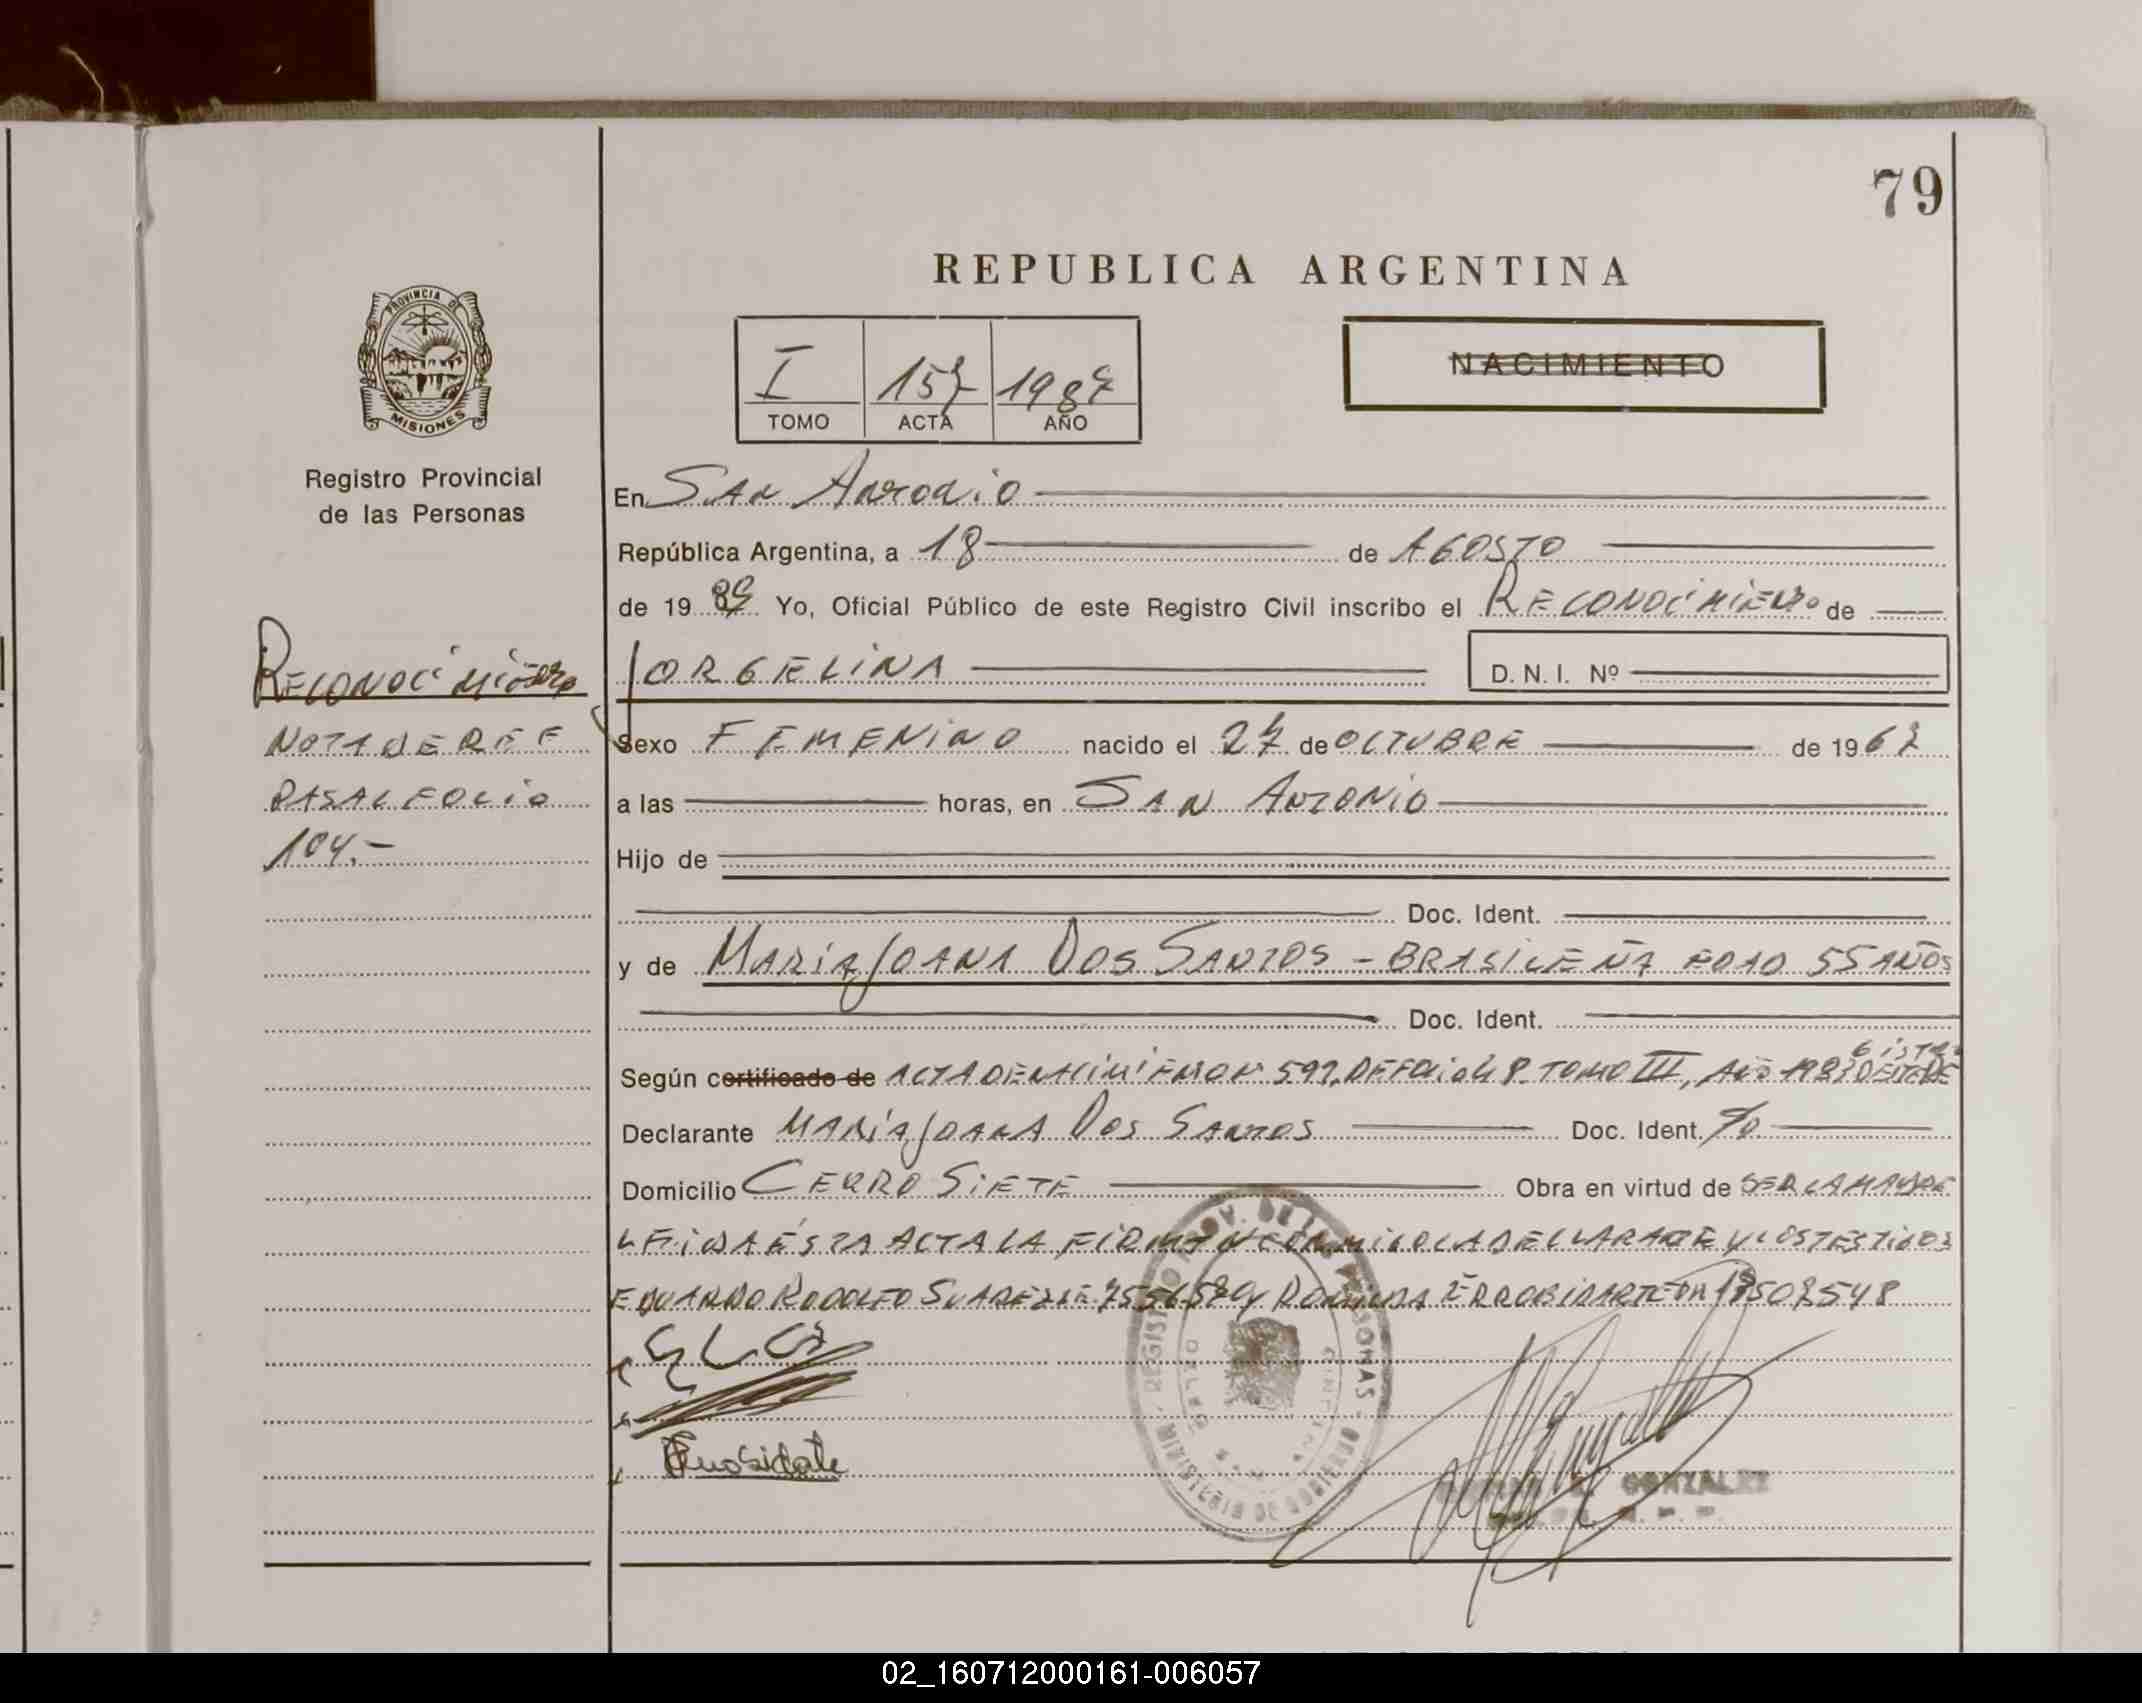 79
REPUBLICA ARGENTINA
PROVINCIA DE
MISIONES
Registro Provincial
de las Personas
I 157
TOMO ACTA AÑO
NACIMIENTO
En San Antonio
República Argentina, a 18 de AGOSTO
de 19 Yo, Oficial Público de este Registro Civil inscribo el RECONOCIMIENTO de
JORGELINA D. N. I. Nº
Sexo FEMENINO nacido el 27 de OCTUBRE de 19
a las horas, en SAN ANTONIO
Hijo de
Doc. Ident.
y de MARIA JOANA DOS SANTOS - BRASILEÑA EDAD 55 AÑOS
Doc. Ident.
Según certificado de ACTA DE NACIMIENTO Nº TOMO III, AÑO
Declarante MARIA JOANA DOS SANTOS Doc. Ident.
Domicilio CERRO SIETE Obra en virtud de SER LA MADRE
LEIDA ÉSTA ACTA LA FIRMAN CONMIGO LA DECLARANTE Y LOS TESTIGOS
EDUARDO RODOLFO SUAREZ
GONZALEZ
RECONOCIMIENTO
NOTA DE REF
PASA AL FOLIO
104.-
02_160712000161-006057